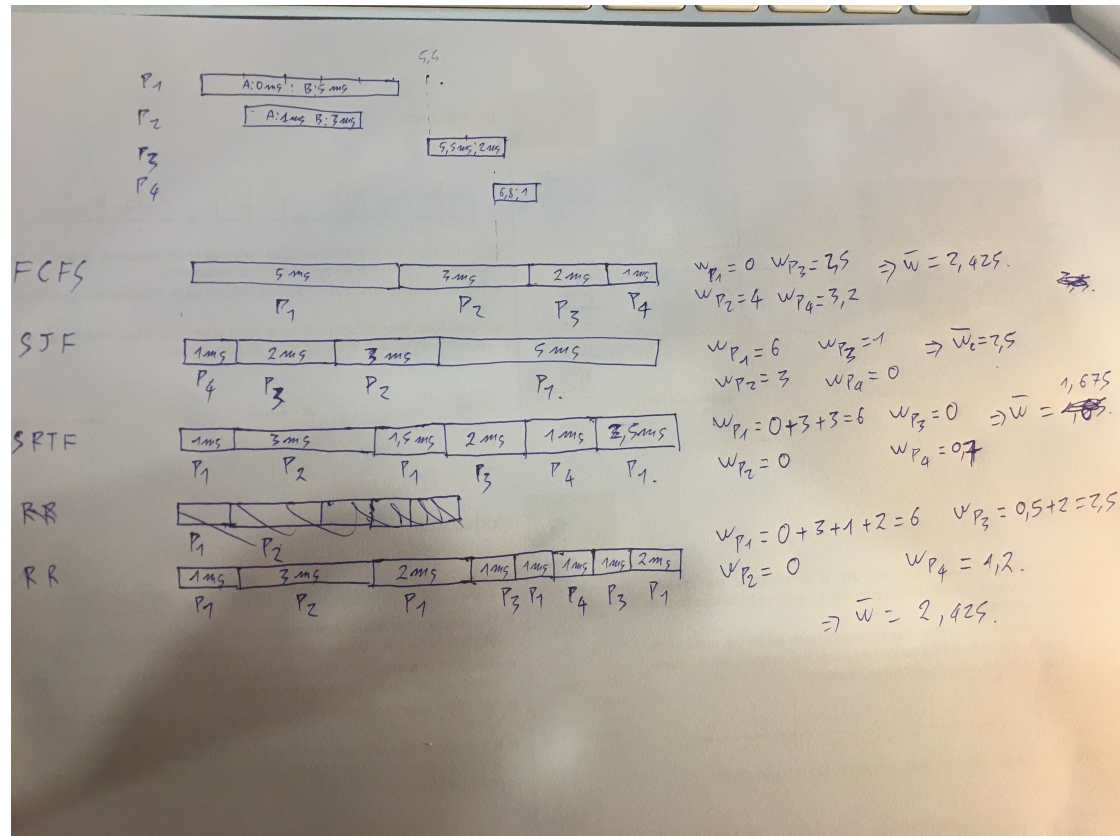 5,5
P1 A:0ms ; B:5ms
P2 A:1ms B:3ms
P3 5,5ms;2ms
P4 6,8;1
FCFS 5ms 3ms 2ms 1ms
P1 P2 P3 P4
wP1=0 wP3=2,5 ⇒ w̅ = 2,425.
wP2=4 wP4=3,2
SJF 1ms 2ms 3ms 5ms
P4 P3 P2 P1.
wP1=6 wP3=1 ⇒ w̅=2,5
wP2=3 wP4=0
SRTF 1ms 3ms 1,5ms 2ms 1ms ,5ms
P1 P2 P1 P3 P4 P1.
wP1=0+3+3=6 wP3=0 ⇒ w̅ = 1,675
wP2=0 wP4=0,7
RR
P1 P2
RR 1ms 3ms 2ms 1ms 1ms 1ms 1ms 2ms
P1 P2 P1 P3 P1 P4 P3 P1
wP1=0+3+1+2=6 wP3=0,5+2=2,5
wP2=0 wP4=1,2.
⇒ w̅ = 2,425.